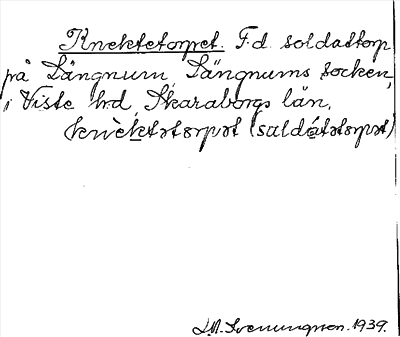 Knektetorpet. F.d. soldattorp
på Längnum, Längnums socken,
i Viste hd, Skaraborgs län.
knèktatɔrpət (såldátatɔrpət)
S.M. Svenungsson. 1939.